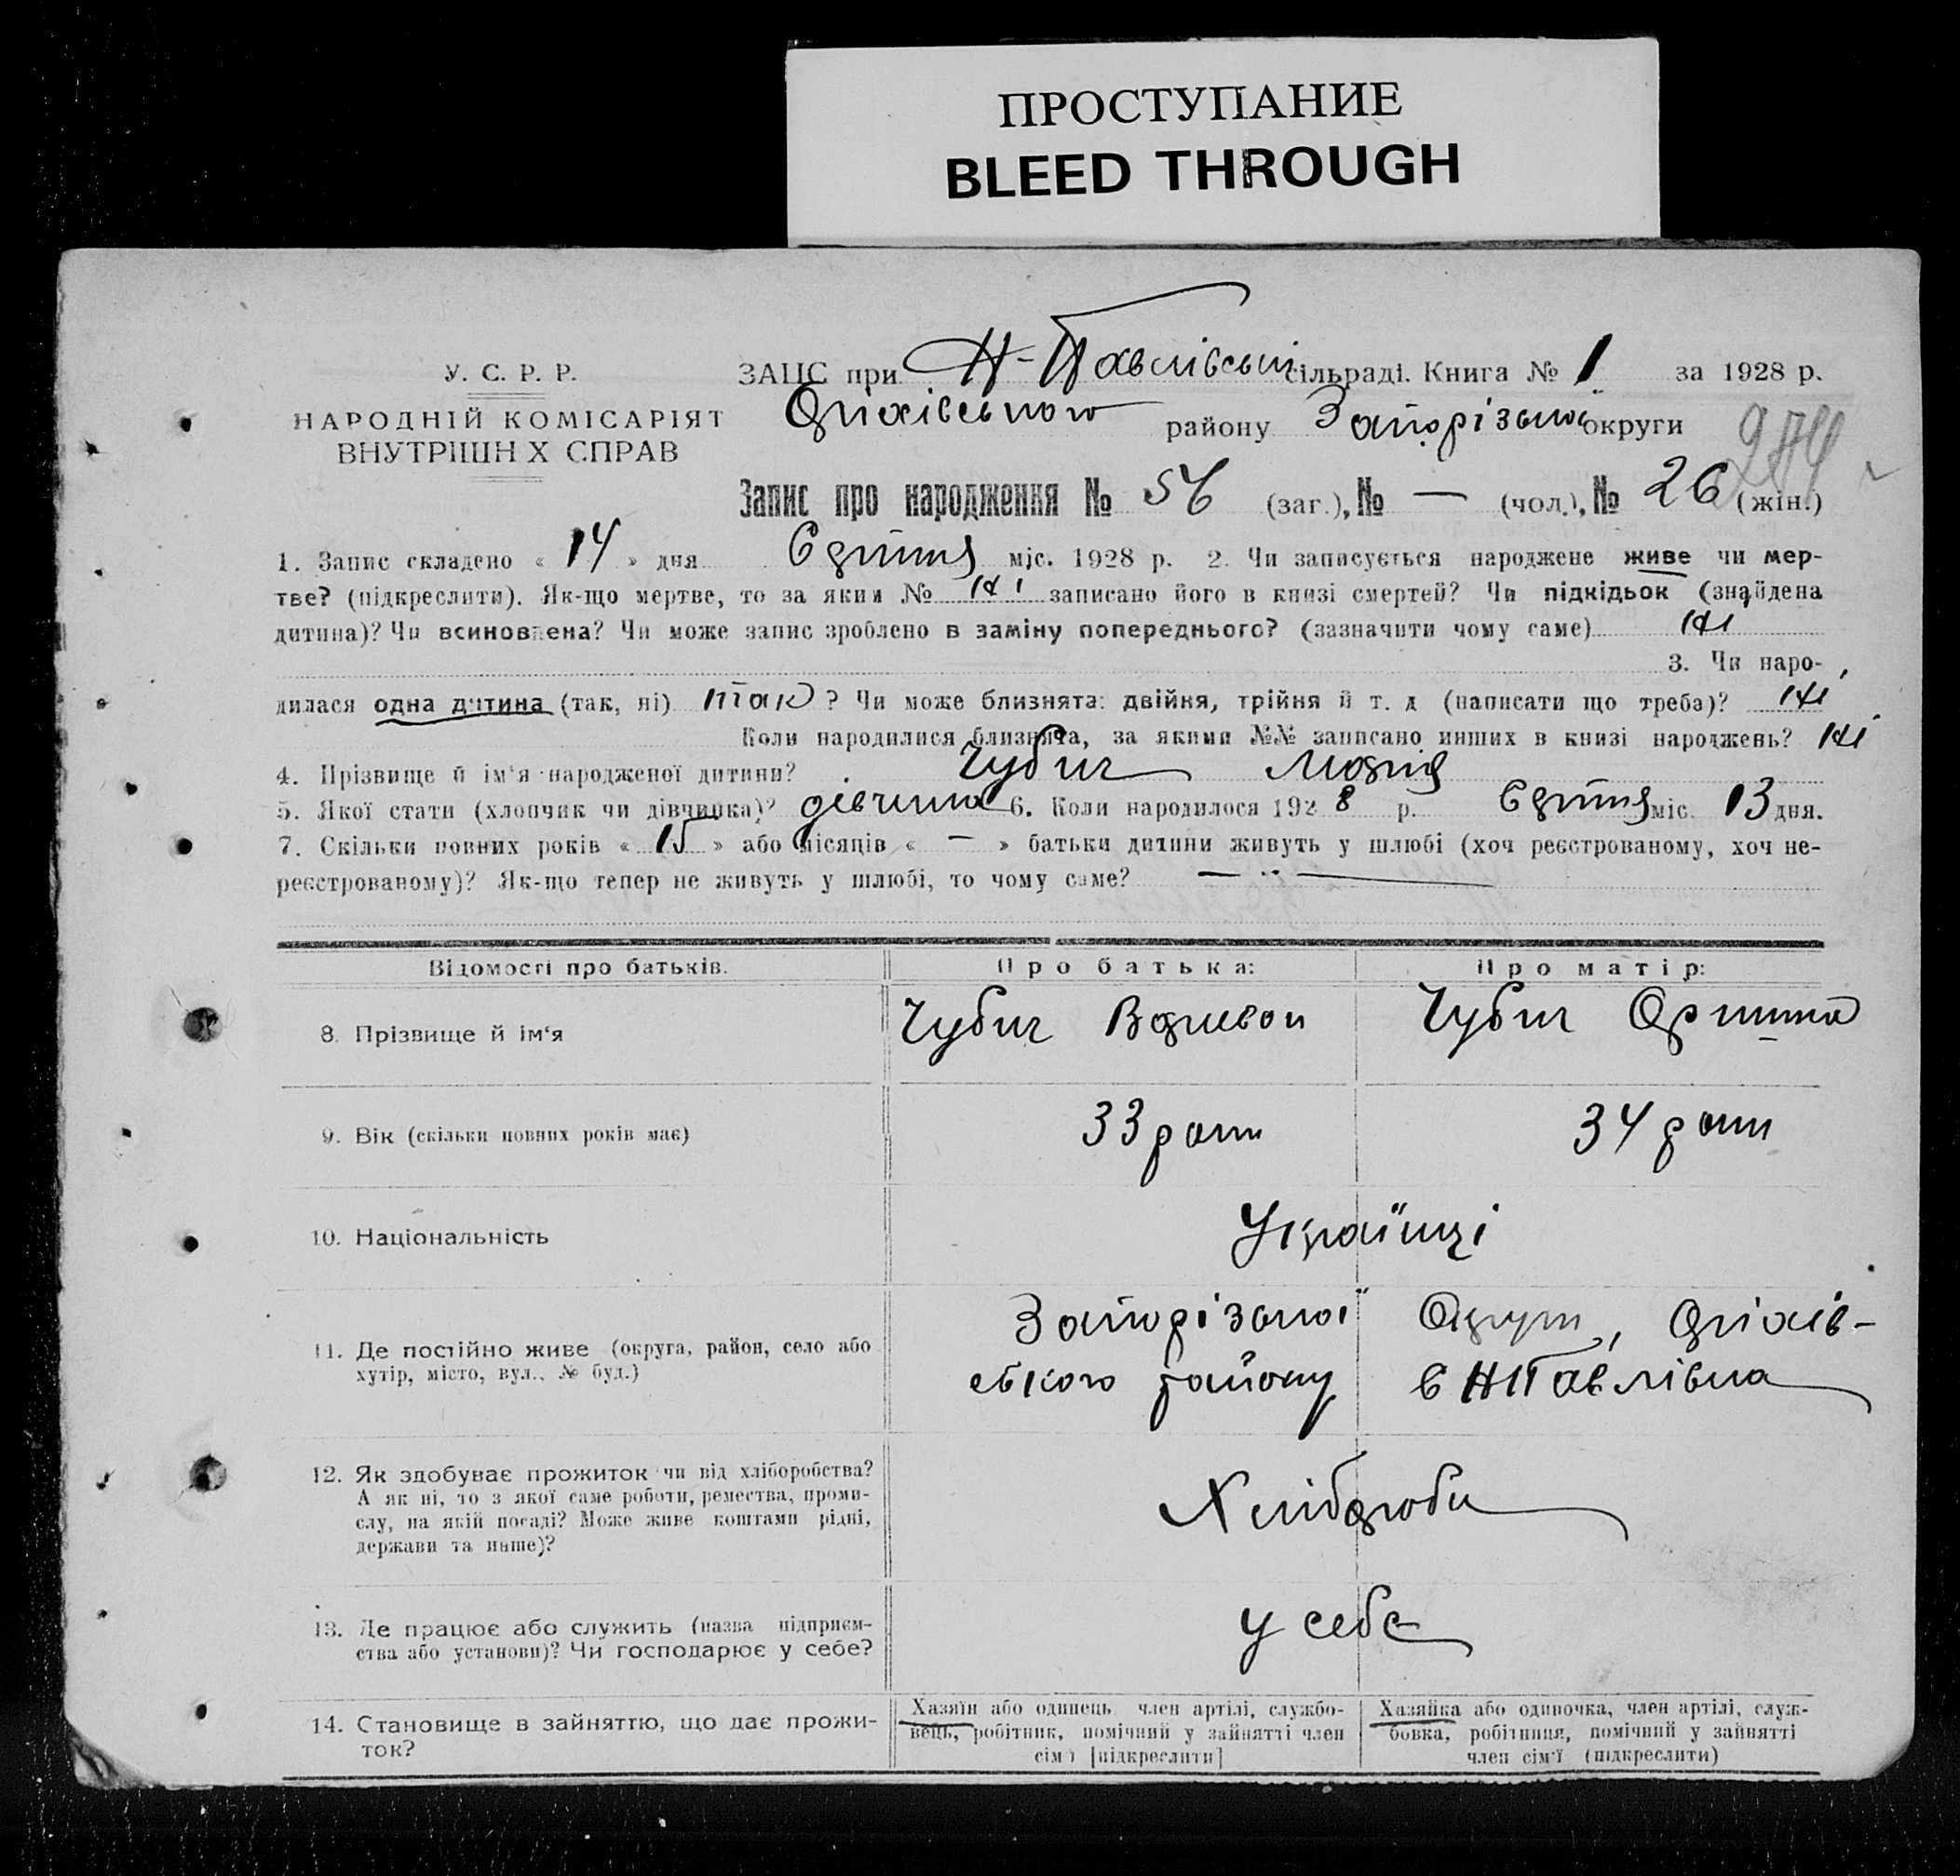 ПРОСТУПАНИЕ
BLEED THROUGH
У. С. Р. Р.
НАРОДНІЙ КОМІСАРІЯТ
ВНУТРІШН Х СПРАВ
ЗАЦС при Н-Павлівській сільраді. Книга № 1 за 1928 р.
Оріхівського району Запорізької округи
Запис про народження № 56 (заг.), № — (чол.), № 26 (жін.)
1. Запис складено « 14 » дня міс. 1928 р. 2. Чи записується народжене живе чи мер-
тве? (підкреслити). Як-що мертве, то за яким № ні записано його в книзі смертей? Чи підкідьок (знайдена
дитина)? Чи всиновлена? Чи може запис зроблено в заміну попереднього? (зазначити чому саме) ні
3. Чи наро-
дилася одна дитина (так, ні) так ? Чи може близнята: двійня, трійня й т. д (написати що треба)? ні
Коли народилися близнята, за якими №№ записано инших в книзі народжень? ні
4. Прізвище й ім'я народженої дитини? Чубич Марія
5. Якої стати (хлопчик чи дівчинка)? дівчина 6. Коли народилося 1928 р. міс. 13 дня.
7. Скільки повних років « 15 » або місяців « — » батьки дитини живуть у шлюбі (хоч реєстрованому, хоч не-
реєстрованому)? Як-що тепер не живуть у шлюбі, то чому саме? — " —
Відомості про батьків. Про батька: Про матір:
8. Прізвище й ім'я Чубич Чубич Орина
9. Вік (скільки повних років має) 33 роки 34 роки
10. Національність Українці
11. Де постійно живе (округа, район, село або
хутір, місто, вул., № буд.)
Запорізької Округи, Оріхів-
ського району с НПавлівка
12. Як здобуває прожиток чи від хліборобства?
А як ні, то з якої саме роботи, ремества, проми-
слу, на якій посаді? Може живе коштами рідні,
держави та инше)?
Хлібороби
13. Де працює або служить (назва підприєм-
ства або установи)? Чи господарює у себе?
у себе
14. Становище в зайняттю, що дає прожи-
ток?
Хазяїн або одинець член артілі, службо-
вець, робітник, помічний у зайнятті член
сім'ї [підкреслити]
Хазяйка або одиночка, член артілі, служ-
бовка, робітниця, помічний у зайнятті
член сім'ї (підкреслити)